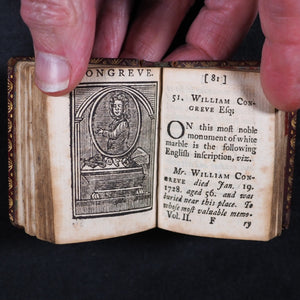 CONGREVE.
[ 81 ]
51. WILLIAM CON-
GREVE Esq;
ON this moſt noble
monument of white
marble is the following
Engliſh inſcription, viz.
Mr. WILLIAM CON-
GREVE died Jan. 19.
1728. aged 56. and was
buried near this place. To
whoſe moſt valuable memo-
Vol. II. F ry